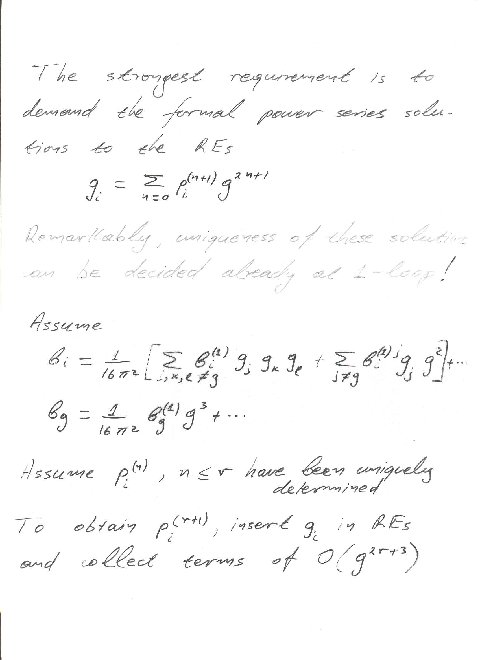 The strongest requirement is to
demand the formal power series solu-
tions to the REs
g_i = Σ_{n=0} ρ_i^{(n+1)} g^{2n+1}
Remarkably, uniqueness of these solutions
can be decided already at 1-loop!
Assume
β_i = 1/16π² [ Σ_{j,k,l≠g} β_i^{(1)} g_j g_k g_l + Σ_{j≠g} β_i^{(1)j} g_j g² ] + ...
β_g = 1/16π² β_g^{(1)} g³ + ...
Assume ρ_i^{(n)}, n ≤ r have been uniquely
determined
To obtain ρ_i^{(r+1)}, insert g_i in REs
and collect terms of O(g^{2r+3})